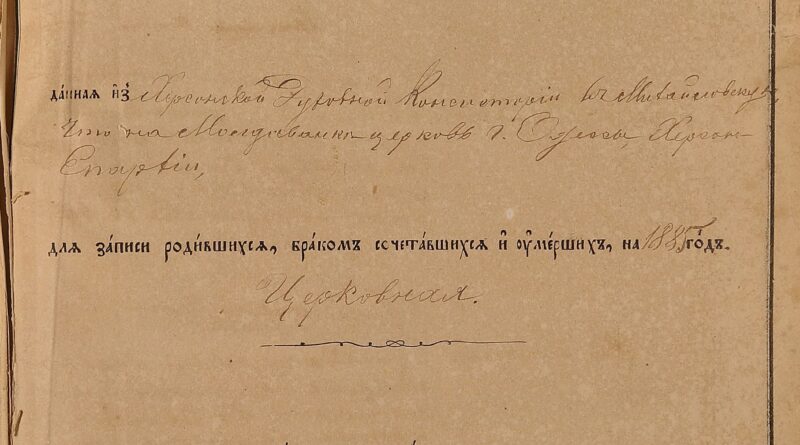 да́нная и҆з̾ Херсонской Духовной Консисторіи въ Михайловскую,
что на Молдаванкѣ церковь г. Одессы, Херсон-
Епархіи,
для за́писи роди́вшихся, бра́комъ сочета́вшихся и҆ ᲂу҆ме́ршихъ, на 1885 го́дъ.
Церковная.